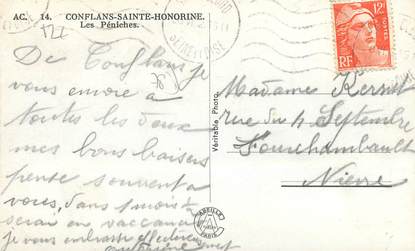 AC. 14. CONFLANS-SAINTE-HONORINE.
Les Péniches.
De Conflans je
vous envoie à
toutes les deux
mes bons baisers
pense souvent à
vous, dans 1 mois je
serai en vacances
je vous embrasse affectueusement
Véritable Photo
ABEILLE
PARIS
12F
POSTES
RF
SEINE ET OISE
Madame Kersuit
rue du 4 Septembre
Fourchambault
Nièvre